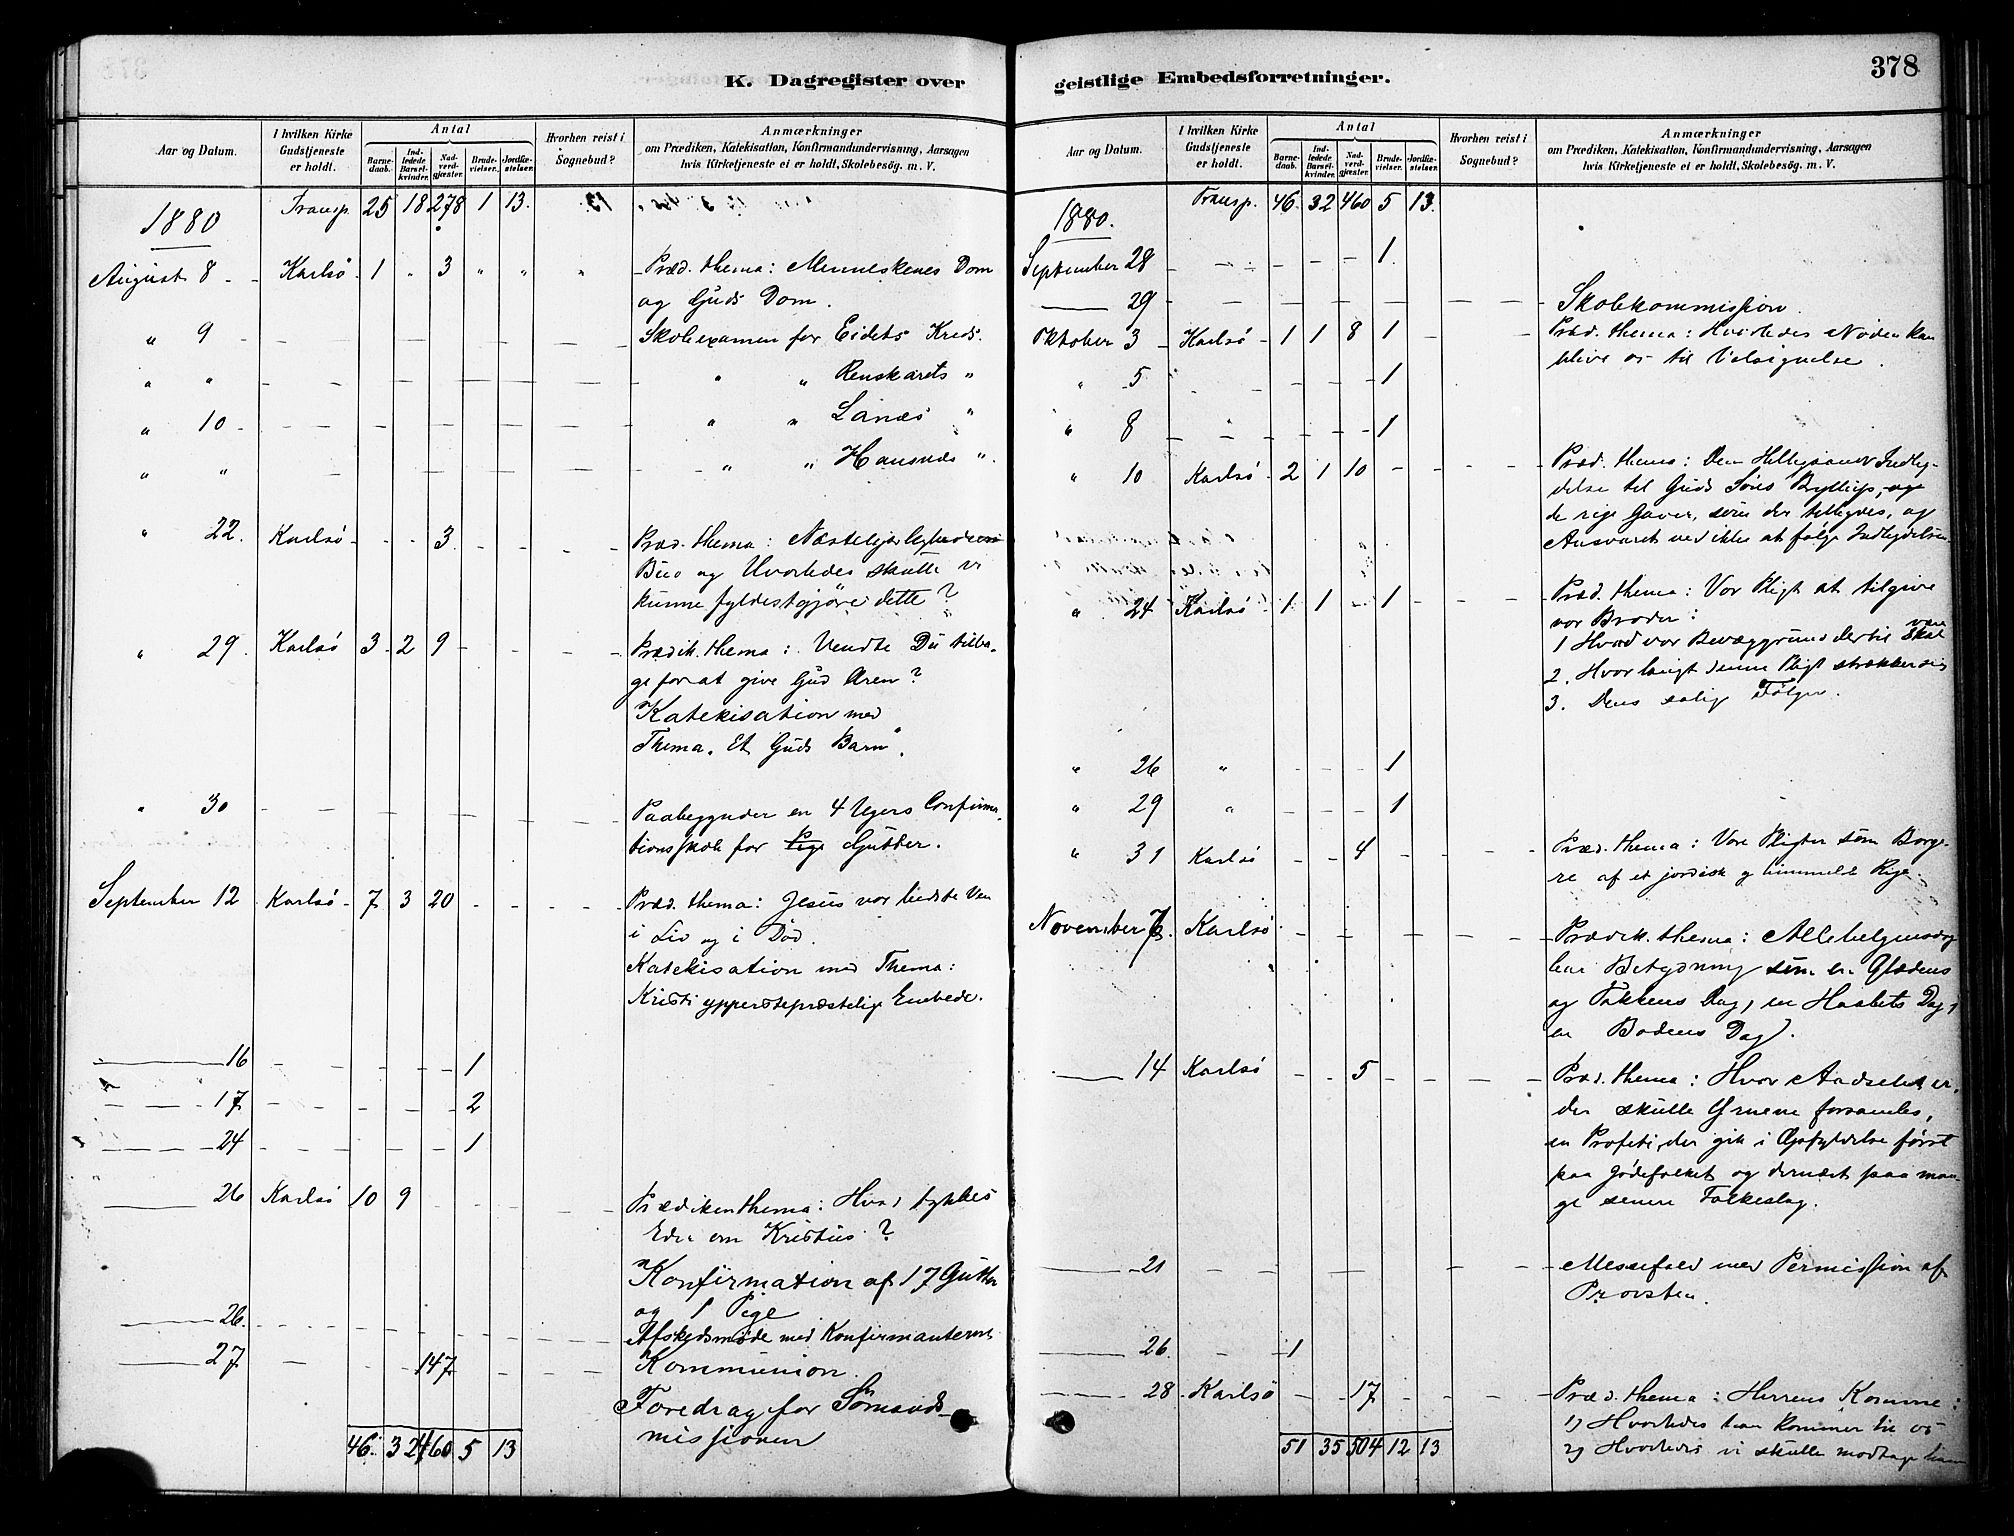 378
K. Dagregister over
Aar og Datum.
I hvilken Kirke Gudstjeneste er holdt.
Antal
Barne-daab.
Ind-ledede Barsel-kvinder.
Nad-verd-gjæster.
Brude-vielser.
Jordfæ-stelser.
Hvorhen reist i Sognebud?
Anmærkninger
om Prædiken, Katekisation, Konfirmandundervisning, Aarsagen
hvis Kirketjeneste ei er holdt, Skolebesög. m. V.
1880 Transp. 25 18 278 1 13.
August 8 - Karlsö - 1 " 3 " " " Præd. thema: Menneskenes Dom
og Guds Dom.
" 9 Skoleexamen for Eidets Kreds.
" " " " Renskarets "
" 10 - " " Lanæs "
" " " " Hansnæs "
" 22. Karlsö - - - 3 - - - Præd. thema:
Bud og Hvorledes skulle vi
kunne fyldestgjöre dette?
" 29. Karlsö 3 2 9 - - - Prædik. thema: Vendte Du tilba-
ge for at give Gud Æren?
Katekisation med
Thema. "Et Guds Barn".
" 30 Paabegynder en 4 Ugers Confirma-
tionsskole for Pige Gutter.
September 12 Karlsö - 7 3 20 - - - Præd. thema: Jesus vor bedste Ven
i Liv og i Död.
Katekisation med Thema:
Kristi ypperstepræstelige Embede.
16 - - - - 1
17 - - - - 2
24 - - - - 1
26 Karlsö 10 9 - - - Prædikenthema: Hvad tykkes
Eder om Kristus?
Konfirmation af 17 Gutter
og 1 Pige
26. Afskedsmöde med Konfirmanterne
27 - - - 147 - - - Kommunion.
Foredrag for Sömands-
missionen
46. 32 460 5 13
geistlige Embedsforretninger.
Aar og Datum.
I hvilken Kirke Gudstjeneste er holdt.
Antal
Barne-daab.
Ind-ledede Barsel-kvinder.
Nad-verd-gjæster.
Brude-vielser.
Jordfæ-stelser.
Hvorhen reist i Sognebud?
Anmærkninger
om Prædiken, Katekisation, Konfirmandundervisning, Aarsagen
hvis Kirketjeneste ei er holdt, Skolebesög. m. V.
1880. Transp. 46. 32 460 5 13.
September 28 - - - - - 1
29 - - - - - Skolekommission.
Oktober 3 - Karlsö - 1 1 8 1 - - Præd. thema: Hvorledes Nöden kan
blive os til Velsignelse.
" 5 - - - - 1
" 8 - " - - - 1
" 10 Karlsö - 2 1 10 - - - Præd. thema: Den Indby-
delse til Guds Söns Bryllup, og
de rige Gaver, som der tilbydes, og
Ansvaret ved ikke at fölge Indbydelsen.
" 24 Karlsö - 1 1 - 1 - - - Præd. thema: Vor Pligt at tilgive
vor Broder:
1 Hvad vor Bevæggrund dertil skal være
2. Hvor langt denne Pligt strækker sig
3. Dens salige Fölger.
" 26 " - - - 1
" 29 " - - - 1
" 31 Karlsö - - 4 - - - Præd. thema: Vore Pligter som Borge-
re af et jordisk og himmelsk Rige.
November 7. Karlsö - - - - - - Prædik. thema: Allehelgensdag
har Betydning som en Glædens
og Takkens Dag, en Haabets Dag,
en Bodens Dag.
14 Karlsö - - 5 - - - Præd. thema: Hvor Aadselet er,
der skulle Ørnene forsamles,
en Profeti, der gik i Opfyldelse först
paa Jödefolket og dernæst paa man-
ge senere Folkeslag.
21 - - - - - Messefald med Permission af
Provsten.
26. - - 1
28 - Karlsö - - 17 - - - Præd. thema: Herrens Komme:
1) Hvorledes han kommer til os
2) Hvorledes vi skulle modtage ham
51 35 504 12 13